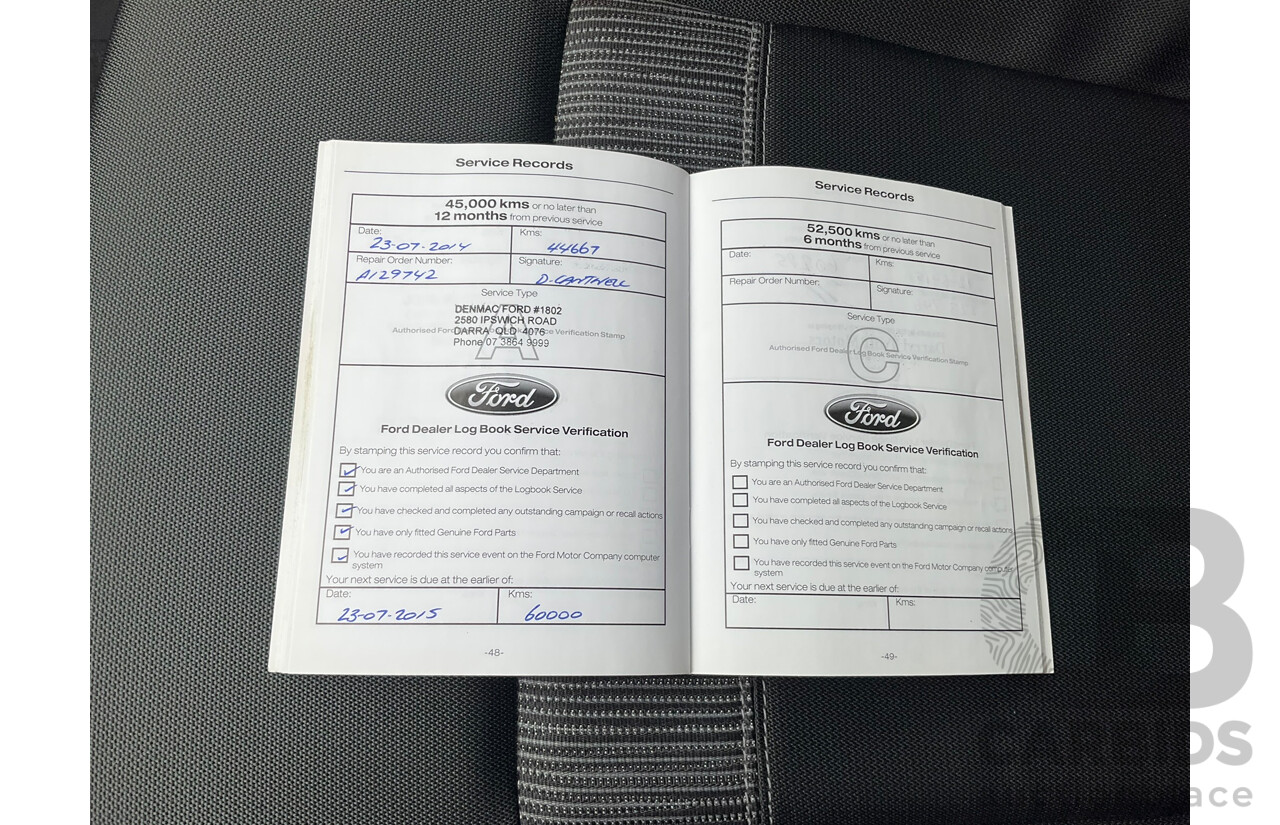 Service Records
45,000 kms or no later than
12 months from previous service
Date:
23-07-2014
Kms:
44667
Repair Order Number:
A129742
Signature:
D. CANTWELL
Service Type
DENMAC FORD #1802
2580 IPSWICH ROAD
DARRA QLD 4076
Phone 07 3864 9999
A
Authorised Ford Service Verification Stamp
Ford
Ford Dealer Log Book Service Verification
By stamping this service record you confirm that:
You are an Authorised Ford Dealer Service Department
You have completed all aspects of the Logbook Service
You have checked and completed any outstanding campaign or recall actions
You have only fitted Genuine Ford Parts
You have recorded this service event on the Ford Motor Company computer
system
Your next service is due at the earlier of:
Date:
23-07-2015
Kms:
60000
-48-
Service Records
52,500 kms or no later than
6 months from previous service
Date:
Kms:
Repair Order Number:
Signature:
Service Type
Authorised Ford Dealer Log Book Service Verification Stamp
C
Ford
Ford Dealer Log Book Service Verification
By stamping this service record you confirm that:
You are an Authorised Ford Dealer Service Department
You have completed all aspects of the Logbook Service
You have checked and completed any outstanding campaign or recall actions
You have only fitted Genuine Ford Parts
You have recorded this service event on the Ford Motor Company computer
system
Your next service is due at the earlier of:
Date:
Kms:
-49-